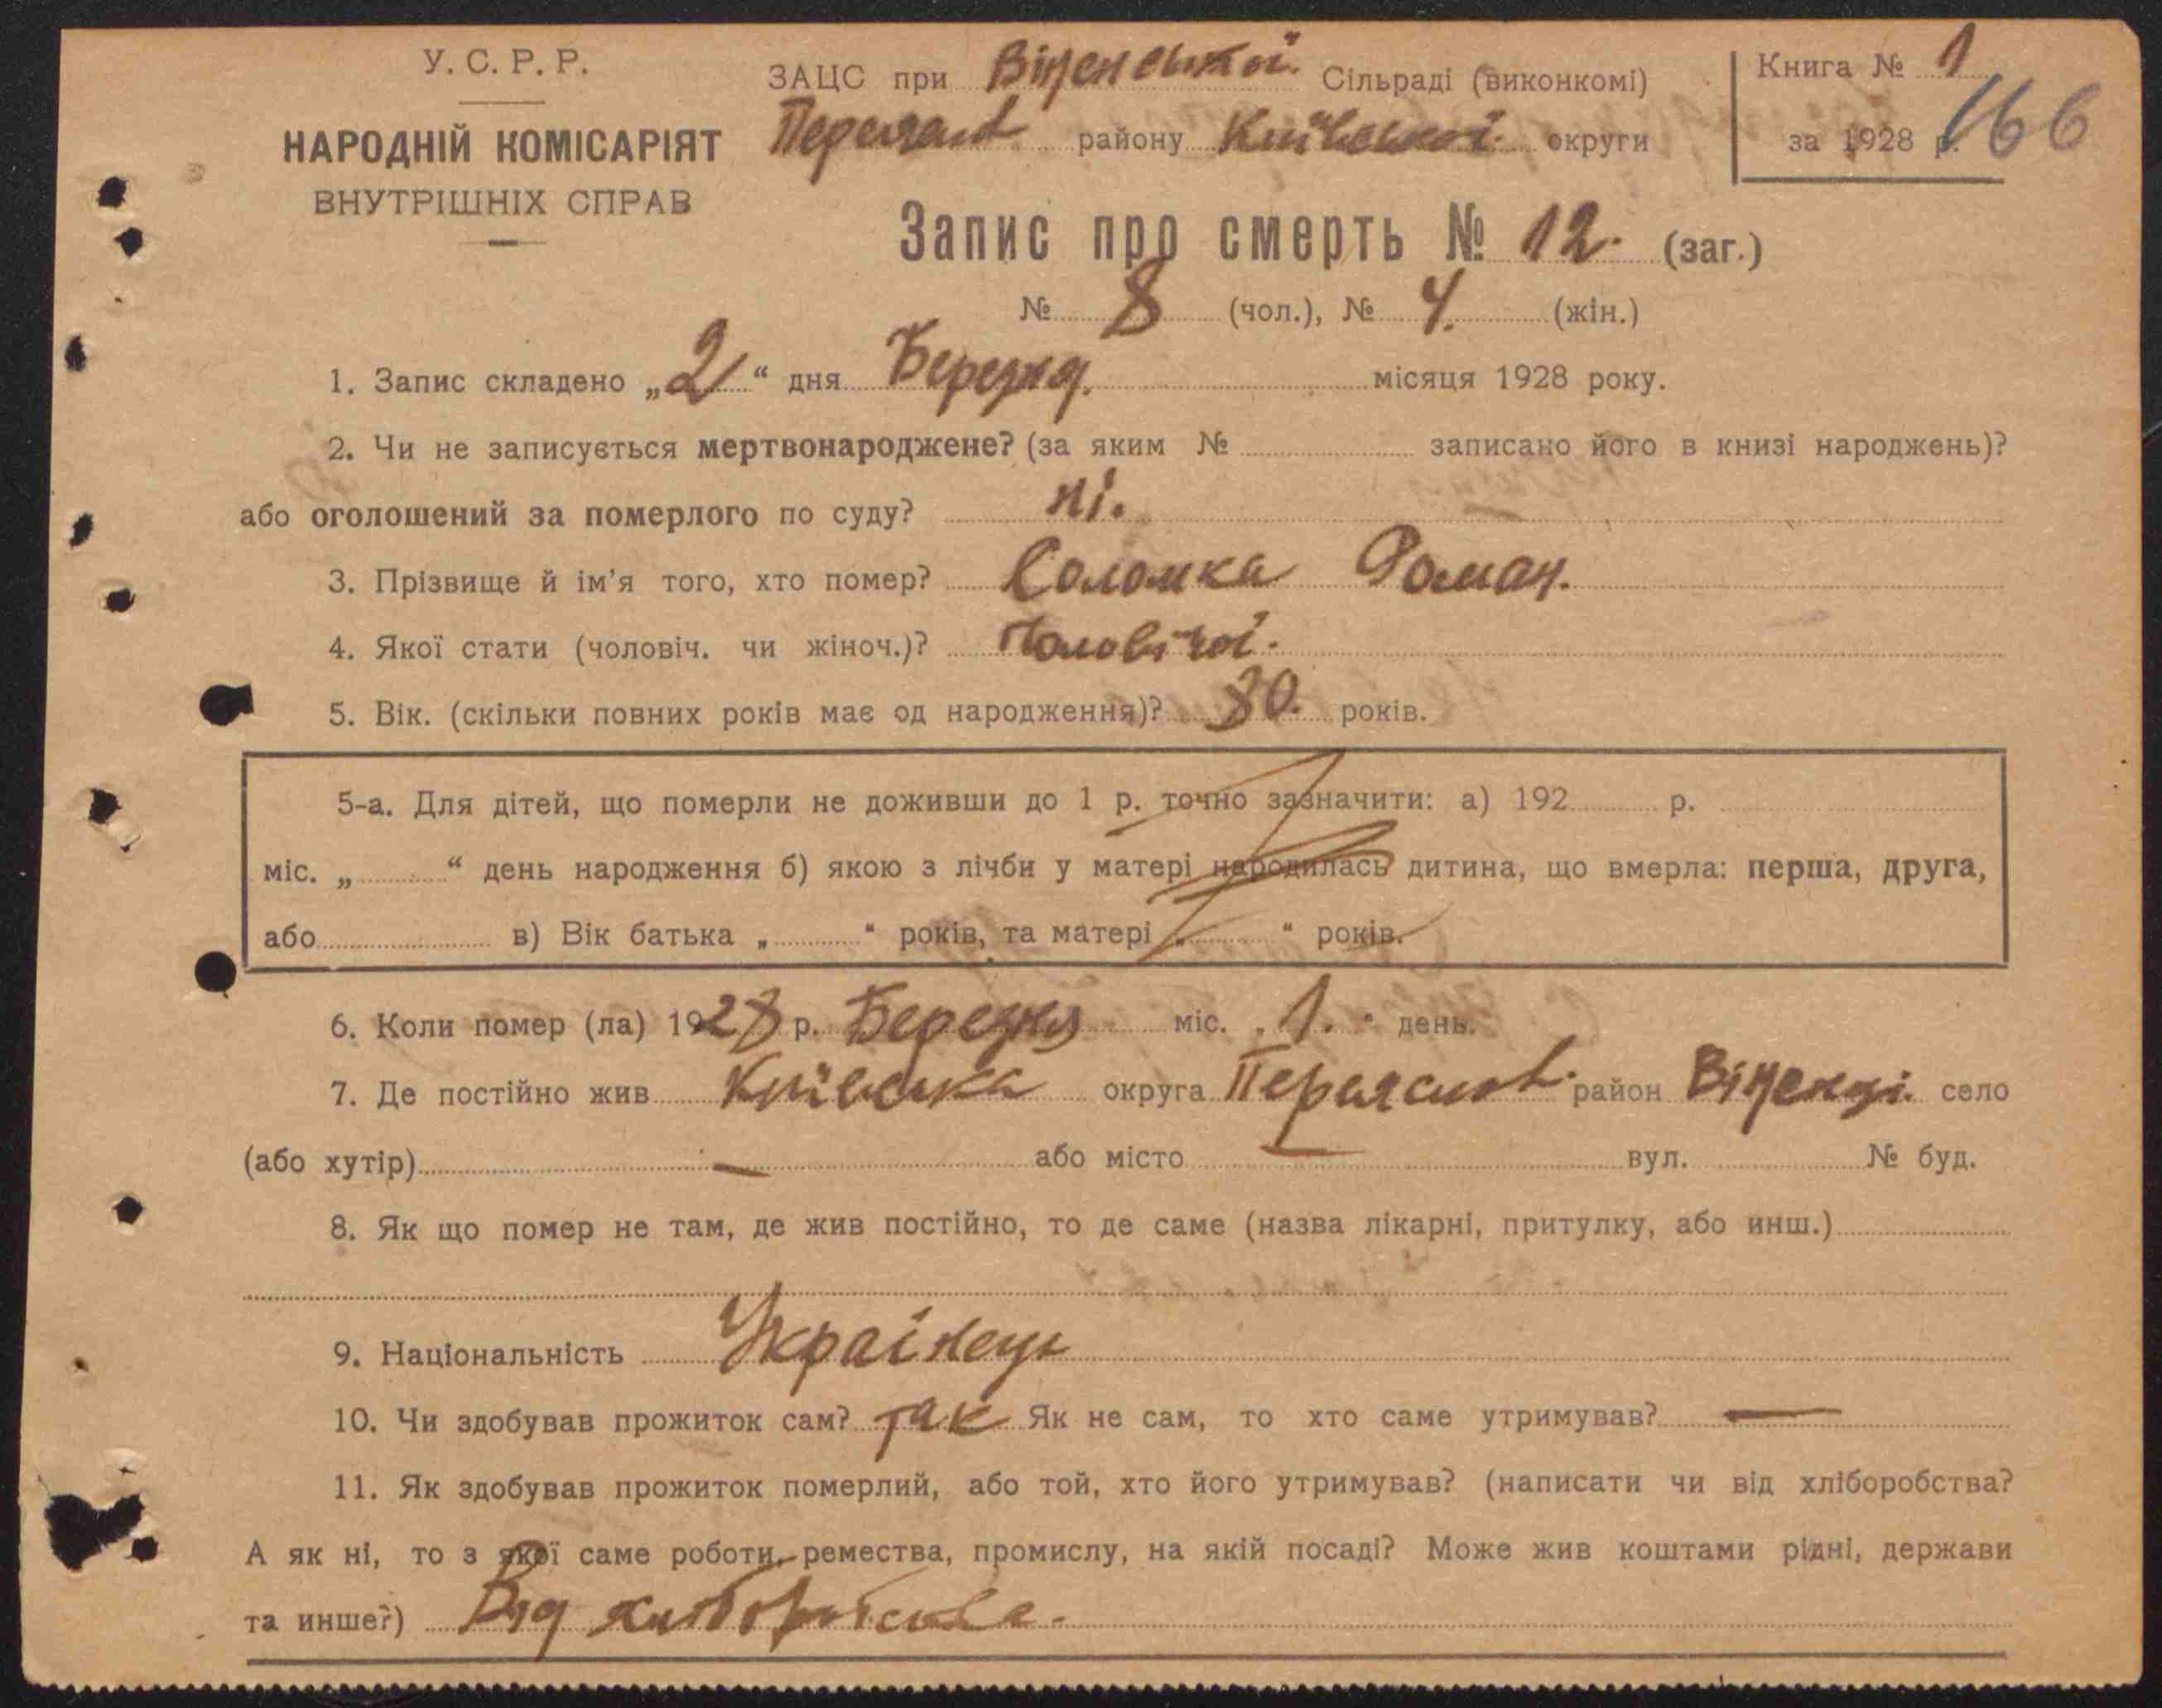 У. С. Р. Р.
НАРОДНІЙ КОМІСАРІЯТ
ВНУТРІШНІХ СПРАВ
ЗАЦС при Віненської Сільраді (виконкомі)
Переясл району Київської округи
Книга № 1
за 1928 р.
166
Запис про смерть № 12. (заг.)
№ 8 (чол.), № 4. (жін.)
1. Запис складено „2“ дня Березня. місяця 1928 року.
2. Чи не записується мертвонароджене? (за яким № записано його в книзі народжень)?
або оголошений за померлого по суду? ні.
3. Прізвище й ім’я того, хто помер? Соломка Роман.
4. Якої стати (чоловіч. чи жіноч.)? Чоловічої.
5. Вік. (скільки повних років має од народження)? 80. років.
5-а. Для дітей, що померли не доживши до 1 р. точно зазначити: а) 192 р.
міс. „ “ день народження б) якою з лічби у матері народилась дитина, що вмерла: перша, друга,
або в) Вік батька „ “ років, та матері „ “ років.
6. Коли помер (ла) 1928 р. Березня міс. „1.“ день.
7. Де постійно жив Київська округа Переяслов. район Віненці. село
(або хутір) — або місто — вул. № буд.
8. Як що помер не там, де жив постійно, то де саме (назва лікарні, притулку, або инш.)
9. Національність Українець
10. Чи здобував прожиток сам? так Як не сам, то хто саме утримував? —
11. Як здобував прожиток померлий, або той, хто його утримував? (написати чи від хліборобства?
А як ні, то з якої саме роботи, ремества, промислу, на якій посаді? Може жив коштами рідні, держави
та инше?) Від хліборобства.